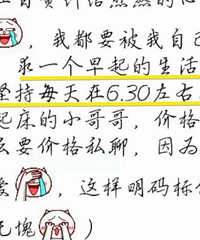 ，我都要被我自己
求一个早起的生活
坚持每天在6.30左右
起床的小哥哥，价格
么要价格私聊，因为
，这样明码标
愧）